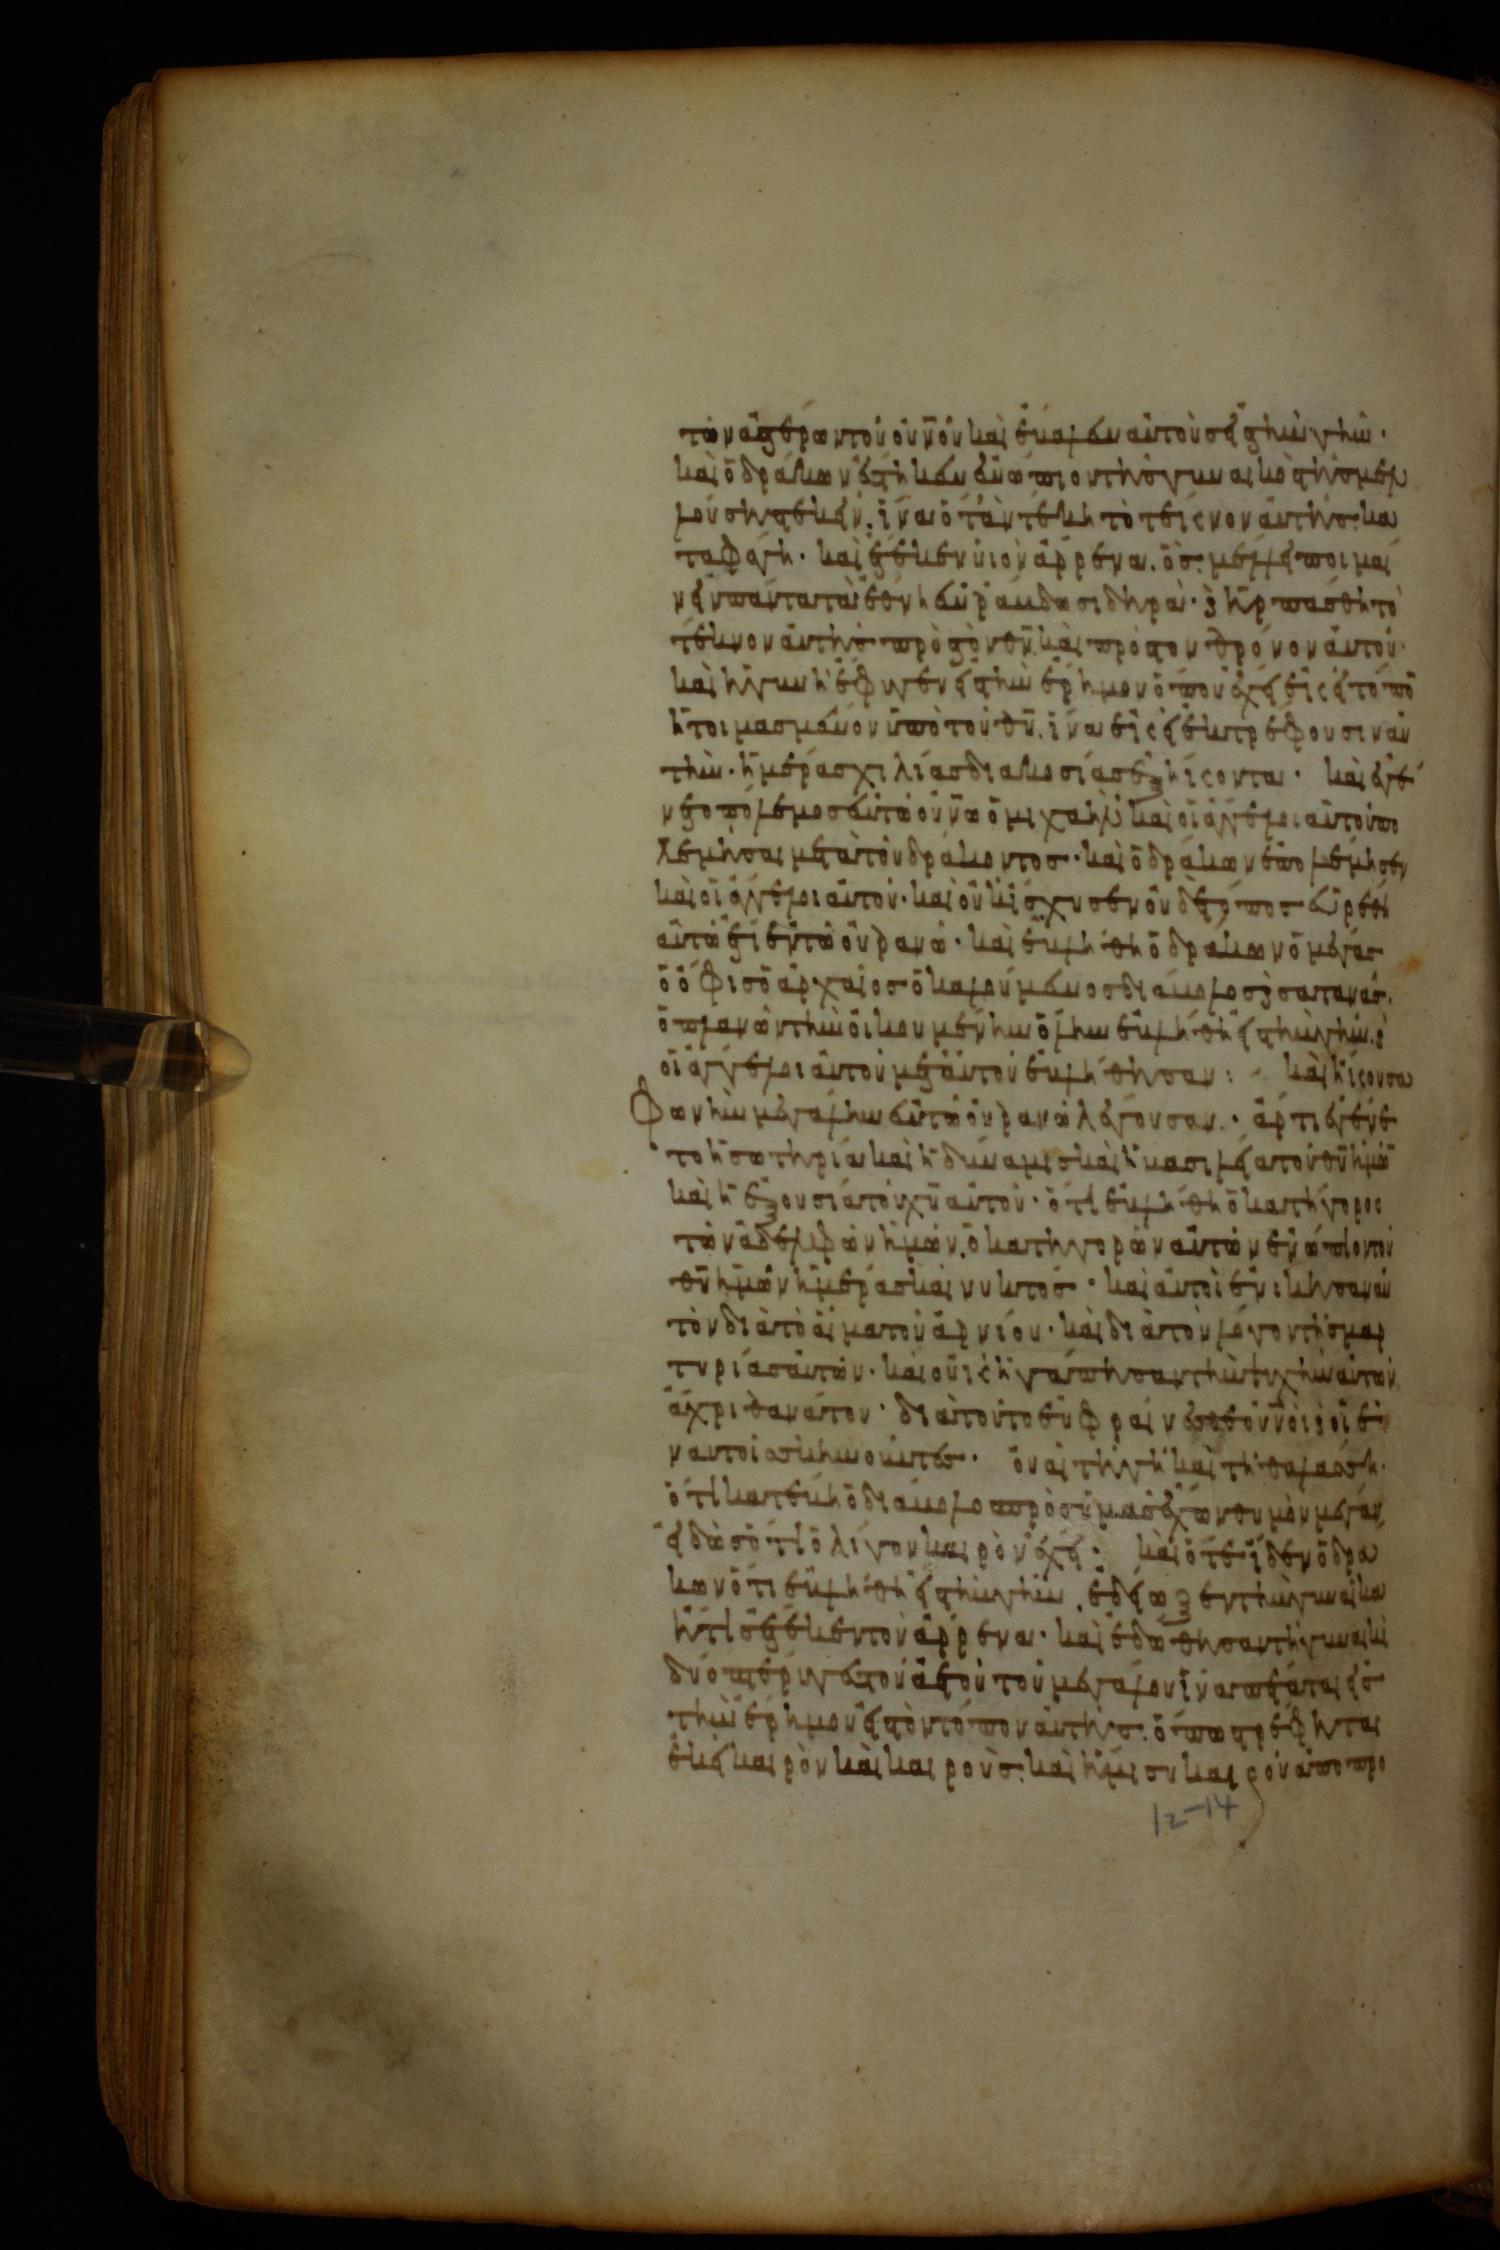 τῶν ἀστέρων τοῦ οὐνοῦ καὶ ἔβαλεν αὐτοὺς εἰς τὴν γῆν·
καὶ ὁ δράκων ἕστηκεν ἐνώπιον τῆς γυναικὸς τῆς μελ
λούσης τεκεῖν. ἵνα ὅταν τέκη τὸ τέκνον αὐτῆς· κα
ταφάγη· καὶ ἔτεκεν υἱὸν ἄρρενα. ὃς μέλλει ποιμαί
νειν πάντα τὰ ἔθνη ἐν ῥάβδω σιδηρᾶ· καὶ ἡρπάσθη τὸ
τέκνον αὐτῆς πρὸς τὸν θν̄. καὶ πρὸς τον θρόνον αὐτοῦ·
καὶ ἡ γυνὴ ἔφυγεν εἰς τὴν ἔρημον ὅπου ἔχει ἐκεῖ τόπο
ἡτοιμασμένον ὑπὸ τοῦ θῦ. ἵνα ἐκεῖ ἐκτρέφουσιν αὐ
τὴν· ἡμέρας χιλίας διακοσίας ἑξήκοντα· καὶ ἐγέ
νετο πόλεμος ἐν τῶ οὐνῶ ὁ μιχαὴλ καὶ οἱ ἄγγελοι αὐτοῦ πο
λεμῆσαι μετὰ τοῦ δράκοντος· καὶ ὁ δράκων ἐπολέμησεν
καὶ οἱ ἄγγελοι αὐτοῦ· καὶ οὐκ ἴσχυσεν οὐδὲ τόπος εὑρέθη
αὐτῶ ἔτι ἐν τῶ οὐρανῶ· καὶ ἐβλήθη ὁ δράκων ὁ μέγας
ὁ ὄφις ὁ ἀρχαῖος ὁ καλούμενος διάβολος καὶ σατανάς.
ὁ πλανῶν τὴν οἰκουμένην ὅλην ἐβλήθη εἰς τὴν γῆν. καὶ
οἱ ἄγγελοι αὐτοῦ μετ' αὐτοῦ ἐβλήθησαν: καὶ ἤκουσα
Φωνὴν μεγάλην ἐν τῶ οὐρανῶ λέγουσαν· ἄρτι ἐγένε
το ἡ σωτηρία καὶ ἡ δύναμις καὶ ἡ βασιλεία τοῦ θῦ ἡμῶ
καὶ ἡ ἐξουσία τοῦ χῦ αὐτοῦ· ὅτι ἐβλήθη ὁ κατήγορος
τῶν ἀδελφῶν ἡμῶν. ὁ κατηγορῶν αὐτῶν ἐνώπιον τοῦ
θῦ ἡμῶν ἡμέρας καὶ νυκτὸς· καὶ αὐτοὶ ἐνίκησαν αὐ
τὸν διὰ τὸ αἷμα τοῦ ἀρνίου· καὶ διὰ τὸν λόγον τῆς μαρ
τυρίας αὐτῶν· καὶ οὐκ ἠγάπησαν τὴν ψυχὴν αὐτῶν
ἄχρι θανάτου· διὰ τοῦτο εὐφραίνεσθε οὐνοὶ καὶ οἱ ἐ
ν αὐτοῖς σκηνοῦντες· οὐαὶ τῆ γῆ καὶ τῆ θαλάσση.
ὅτι κατέβη ὁ διάβολος πρὸς ὑμᾶς ἔχων θυμὸν μέγαν
εἰδὼς ὅτι ὀλίγον καιρὸν ἔχει· καὶ ὅτε ἴδεν ὁ δρά
κων ὅτι ἐβλήθη εἰς τὴν γῆν. ἐδίωξεν τὴν γυναῖκα
ἥτις ἔτεκεν τὸν ἄρρενα· καὶ ἐδόθησαν τῆ γυναικὶ
δύο πτέρυγες τοῦ ἀετοῦ τοῦ μεγάλου ἵνα πέταται εἰς
τὴν ἔρημον εἰς τὸν τόπον αὐτῆς. ὅπως τρέφηται
ἐκεῖ καιρὸν καὶ καιροὺς. καὶ ἥμισυ καιροῦ ἀπο προ
12-14